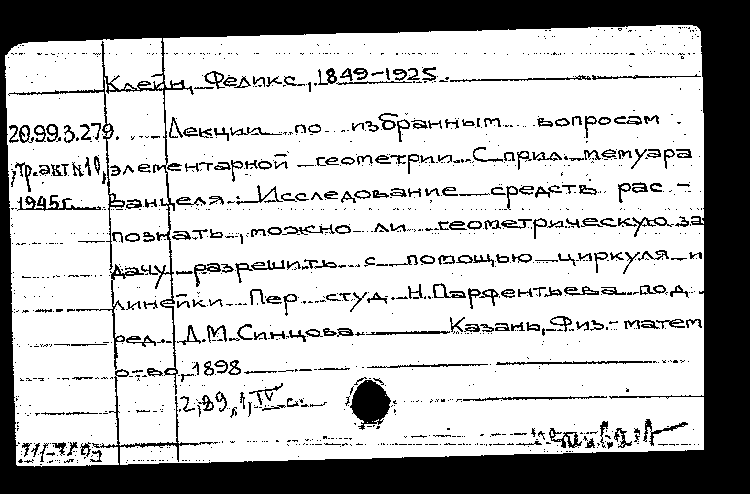 Клейн, Феликс, 1849-1925.
20.99.3.279. Лекции по избранным вопросам
Тр.акт№10, элементарной геометрии. С прил. мемуара
1945г. Ванцеля: Исследование средств рас-
познать, можно ли геометрическую за
дачу разрешить с помощью циркуля и
линейки. Пер. студ. Н.Парфентьева под
ред. Д.М.Синцова. Казань, Физ.-матем
о-во, 1898
2, 89, 1, IV с.